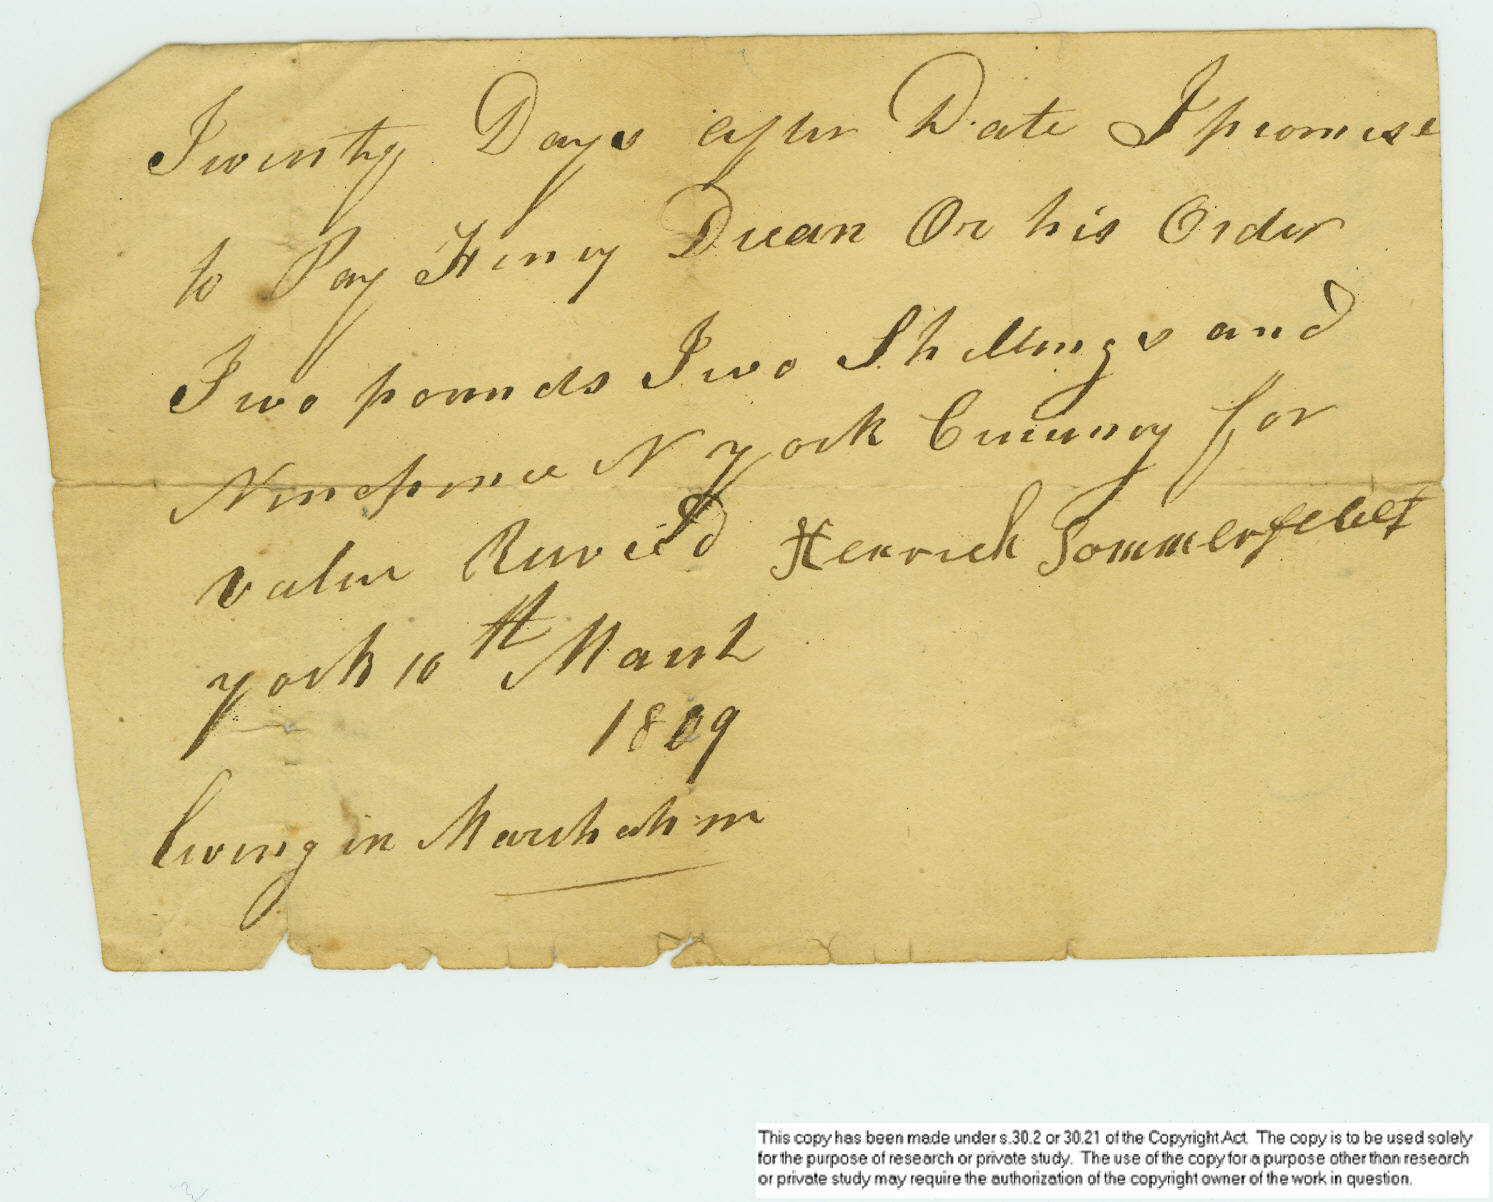 Twenty Days after Date I promise
to Pay Henry Duean Or his Order
Two pounds Two Shillings and
Ninepence N york Currency for
value Receiv'd Henrick Sommerfeldt
york 10th March
1809
living in Marckahm
This copy has been made under s.30.2 or 30.21 of the Copyright Act. The copy is to be used solely
for the purpose of research or private study. The use of the copy for a purpose other than research
or private study may require the authorization of the copyright owner of the work in question.